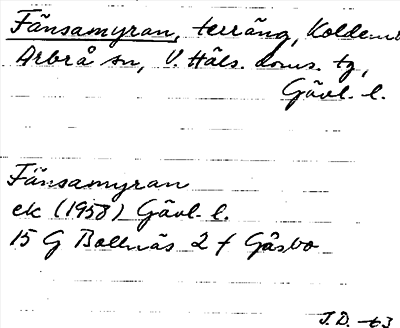 Fänsamyran, terräng, Koldemo
Arbrå sn, V. Häls. doms. tg,
Gävl. l.
Fänsamyran
ek (1958) Gävl. l.
15 G Bollnäs 2 f Gåsbo
J.D. -63